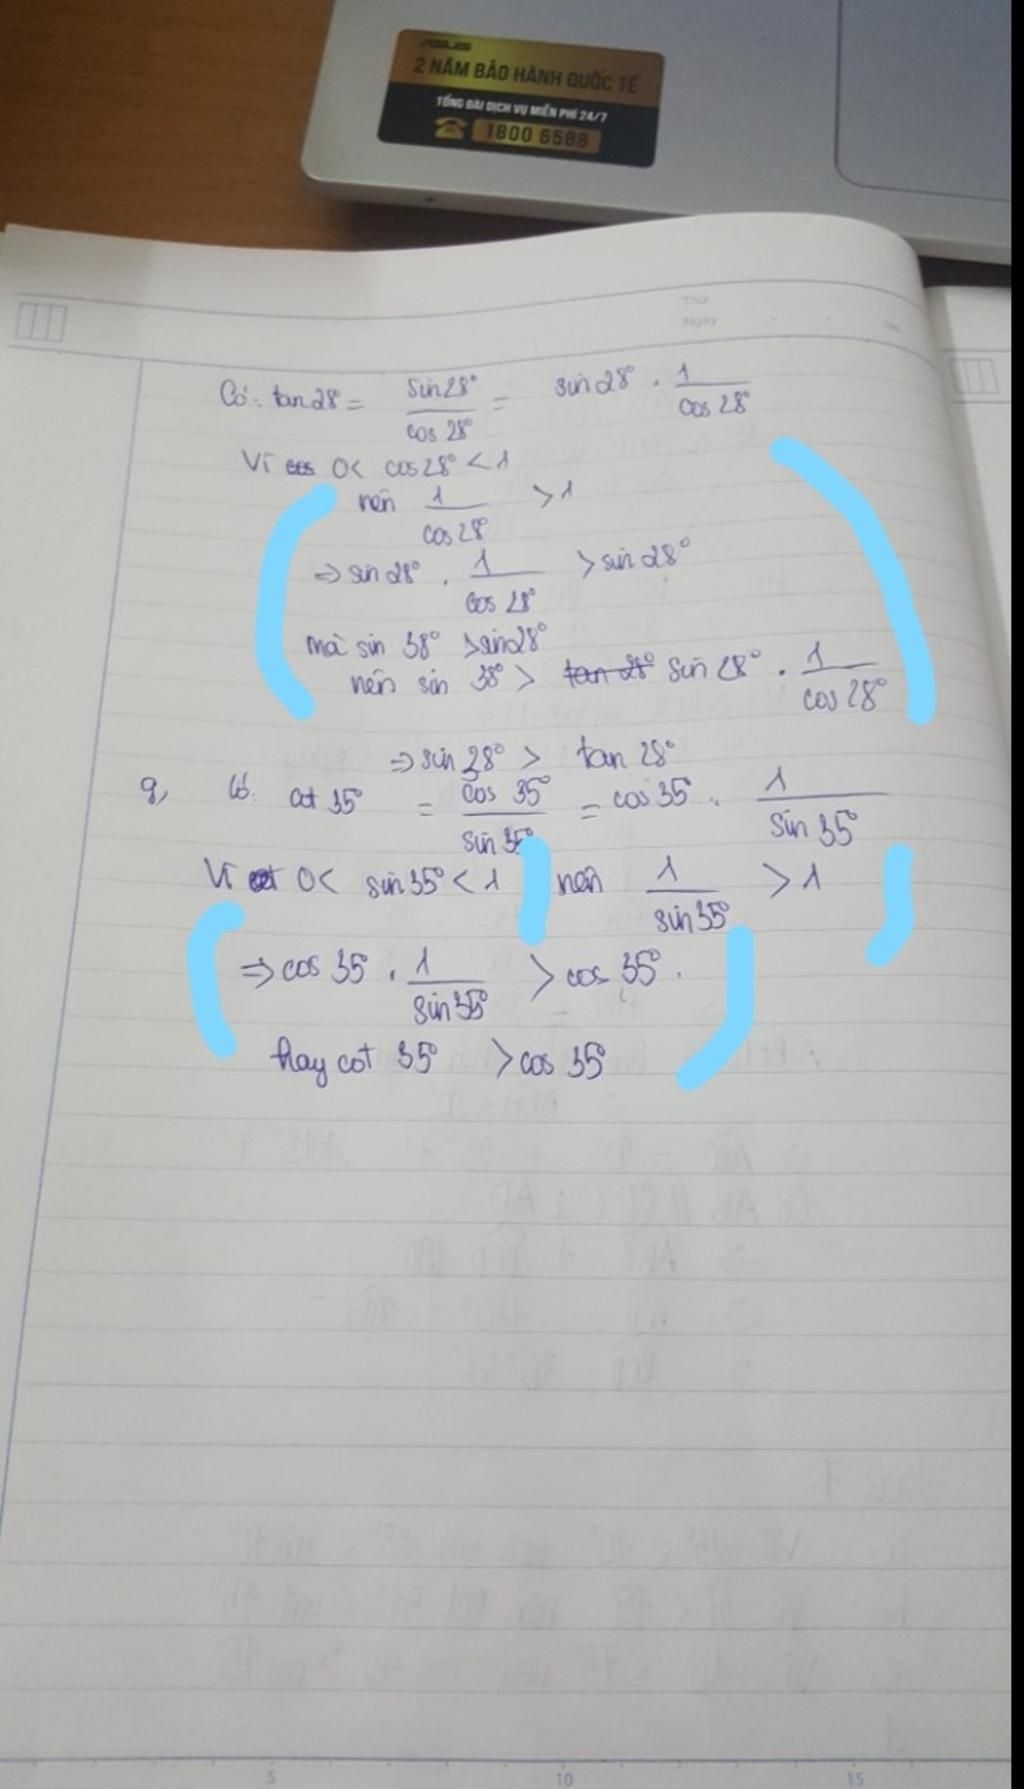 ASUS
2 NĂM BẢO HÀNH QUỐC TẾ
TỔNG ĐÀI DỊCH VỤ MIỄN PHÍ 24/7
1800 6588
Thứ
Ngày
Có: tan 28° = sin 28° / cos 28° = sin 28° . 1 / cos 28°
Vì cos 0 < cos 28° < 1
nên 1 / cos 28° > 1
⇒ sin 28° . 1 / cos 28° > sin 28°
mà sin 38° > sin 28°
nên sin 38° > tan 28° sin 28° . 1 / cos 28°
⇒ sin 38° > tan 28°
g, Có: cot 35° = cos 35° / sin 35° = cos 35° . 1 / sin 35°
Vì cot 0 < sin 35° < 1 nên 1 / sin 35° > 1
⇒ cos 35° . 1 / sin 35° > cos 35°.
hay cot 35° > cos 35°
5 10 15